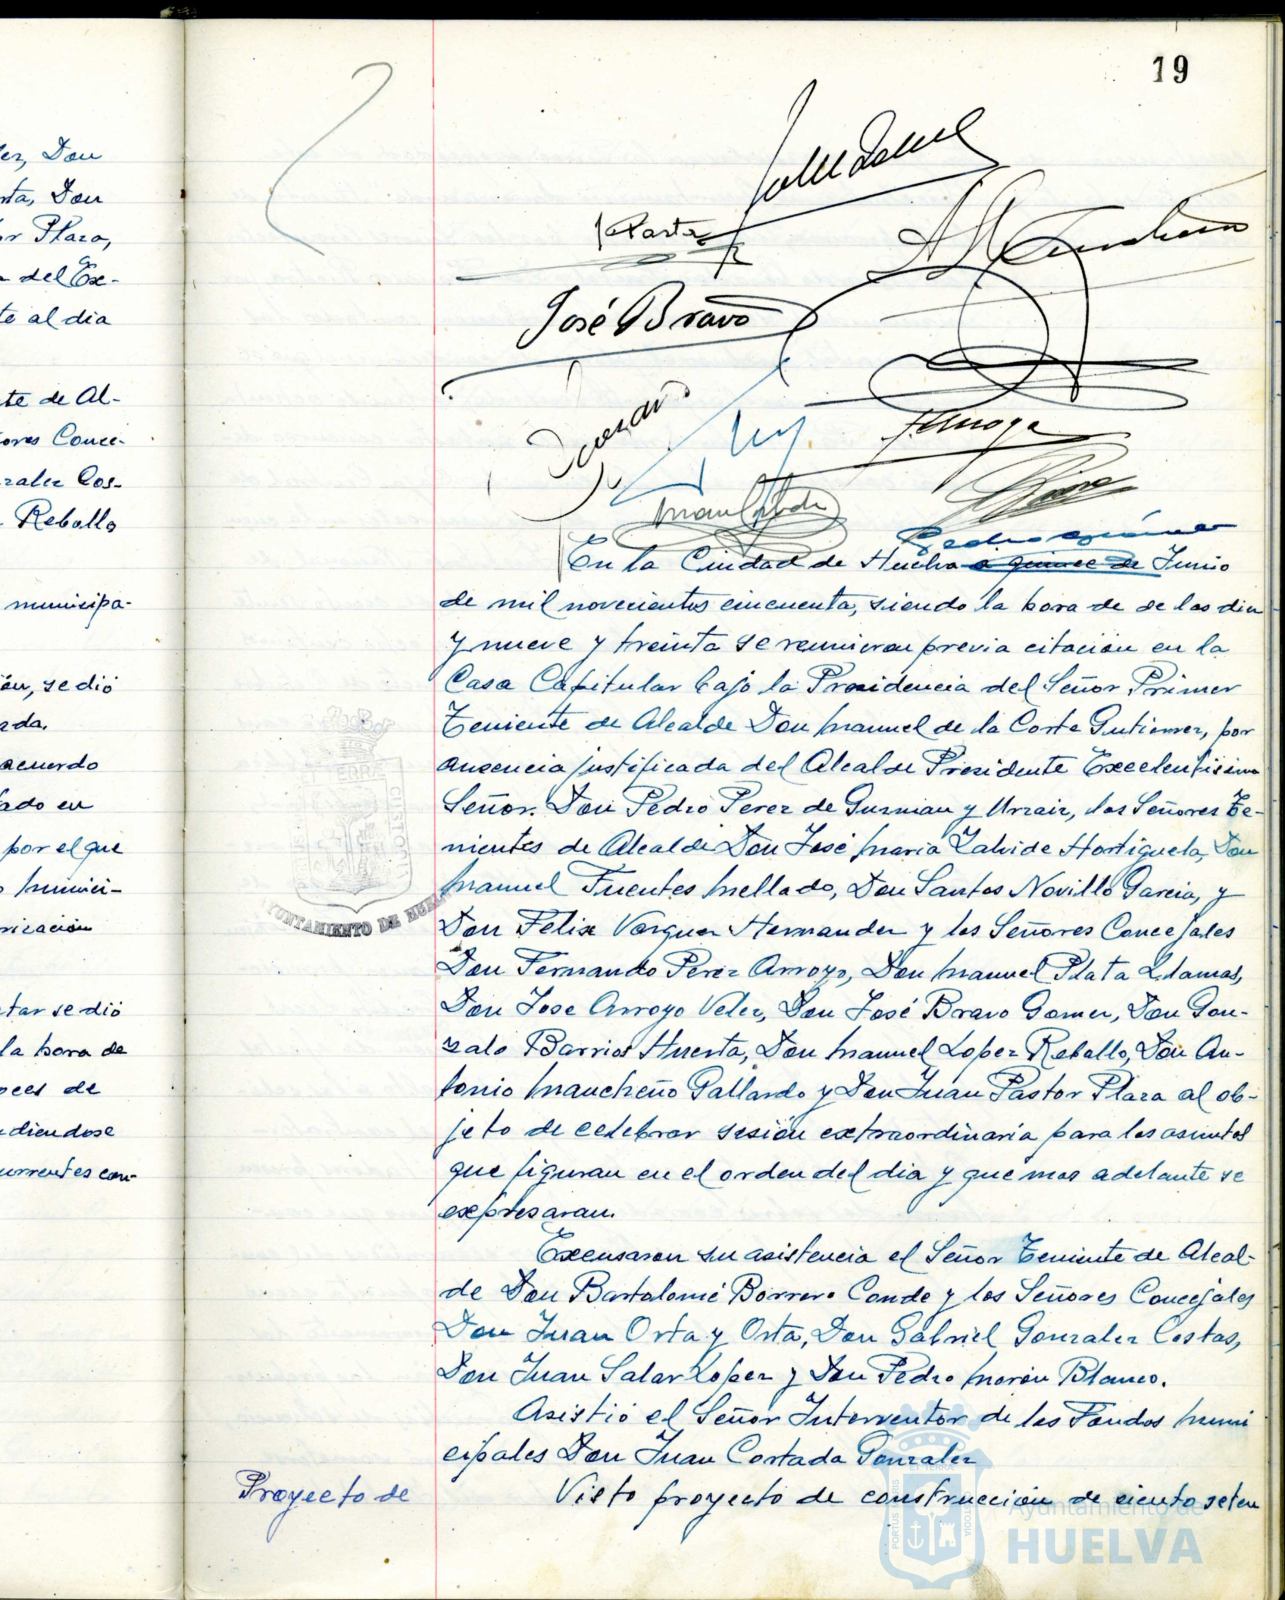 19
ez, Don
rta, Don
or Plaza,
a del Ex-
te al dia
te de Al-
ores Conce-
zalez Cos-
Rebollo
municipa-
ón, se dió
ada.
acuerdo
ado en
por el que
Munici-
rización
tar se dió
la hora de
oces de
diendose
urrentes con-
José Bravo
En la Ciudad de Huelva a quince de Junio
de mil novecientos cincuenta, siendo la hora de de las diez
y nueve y treinta se reunieron previa citación en la
Casa Capitular bajo la Presidencia del Señor Primer
Teniente de Alcalde Don Manuel de la Corte Gutierrez, por
ausencia justificada del Alcalde Presidente Excelentísimo
Señor. Don Pedro Perez de Guzman y Urzaiz, los Señores Te-
nientes de Alcalde Don José Maria Zalvide Hortiguela, Don
Manuel Fuentes Mellado, Don Santos Novillo Garcia, y
Don Felix Vazquez Hernandez y los Señores Concejales
Don Fernando Perez Arroyo, Don Manuel Plata Llamas,
Don Jose Arroyo Velez, Don José Bravo Gomez, Don Gon-
zalo Barrios Huerta, Don Manuel Lopez Rebollo, Don An-
tonio Mancheño Gallardo y Don Juan Pastor Plaza al ob-
jeto de celebrar sesión extraordinaria para los asuntos
que figuran en el orden del dia y que mas adelante se
expresaran.
Excusaron su asistencia el Señor Teniente de Alcal-
de Don Bartolomé Borrero Conde y los Señores Concejales
Don Juan Orta y Orta, Don Gabriel Gonzalez Costas,
Don Juan Salar Lopez y Don Pedro Morón Blanco.
Asistió el Señor Interventor de los Fondos Muni
cipales Don Juan Cortada Gonzalez
Proyecto de
Visto proyecto de construcción de ciento seten
AYUNTAMIENTO DE HUELVA
Ayuntamiento de
HUELVA